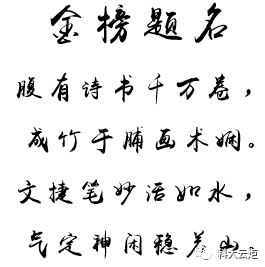 金榜题名
腹有诗书千万卷，
成竹于脯画术娴。
文捷笔妙语如水，
气定神闲稳若山。
科大云炬